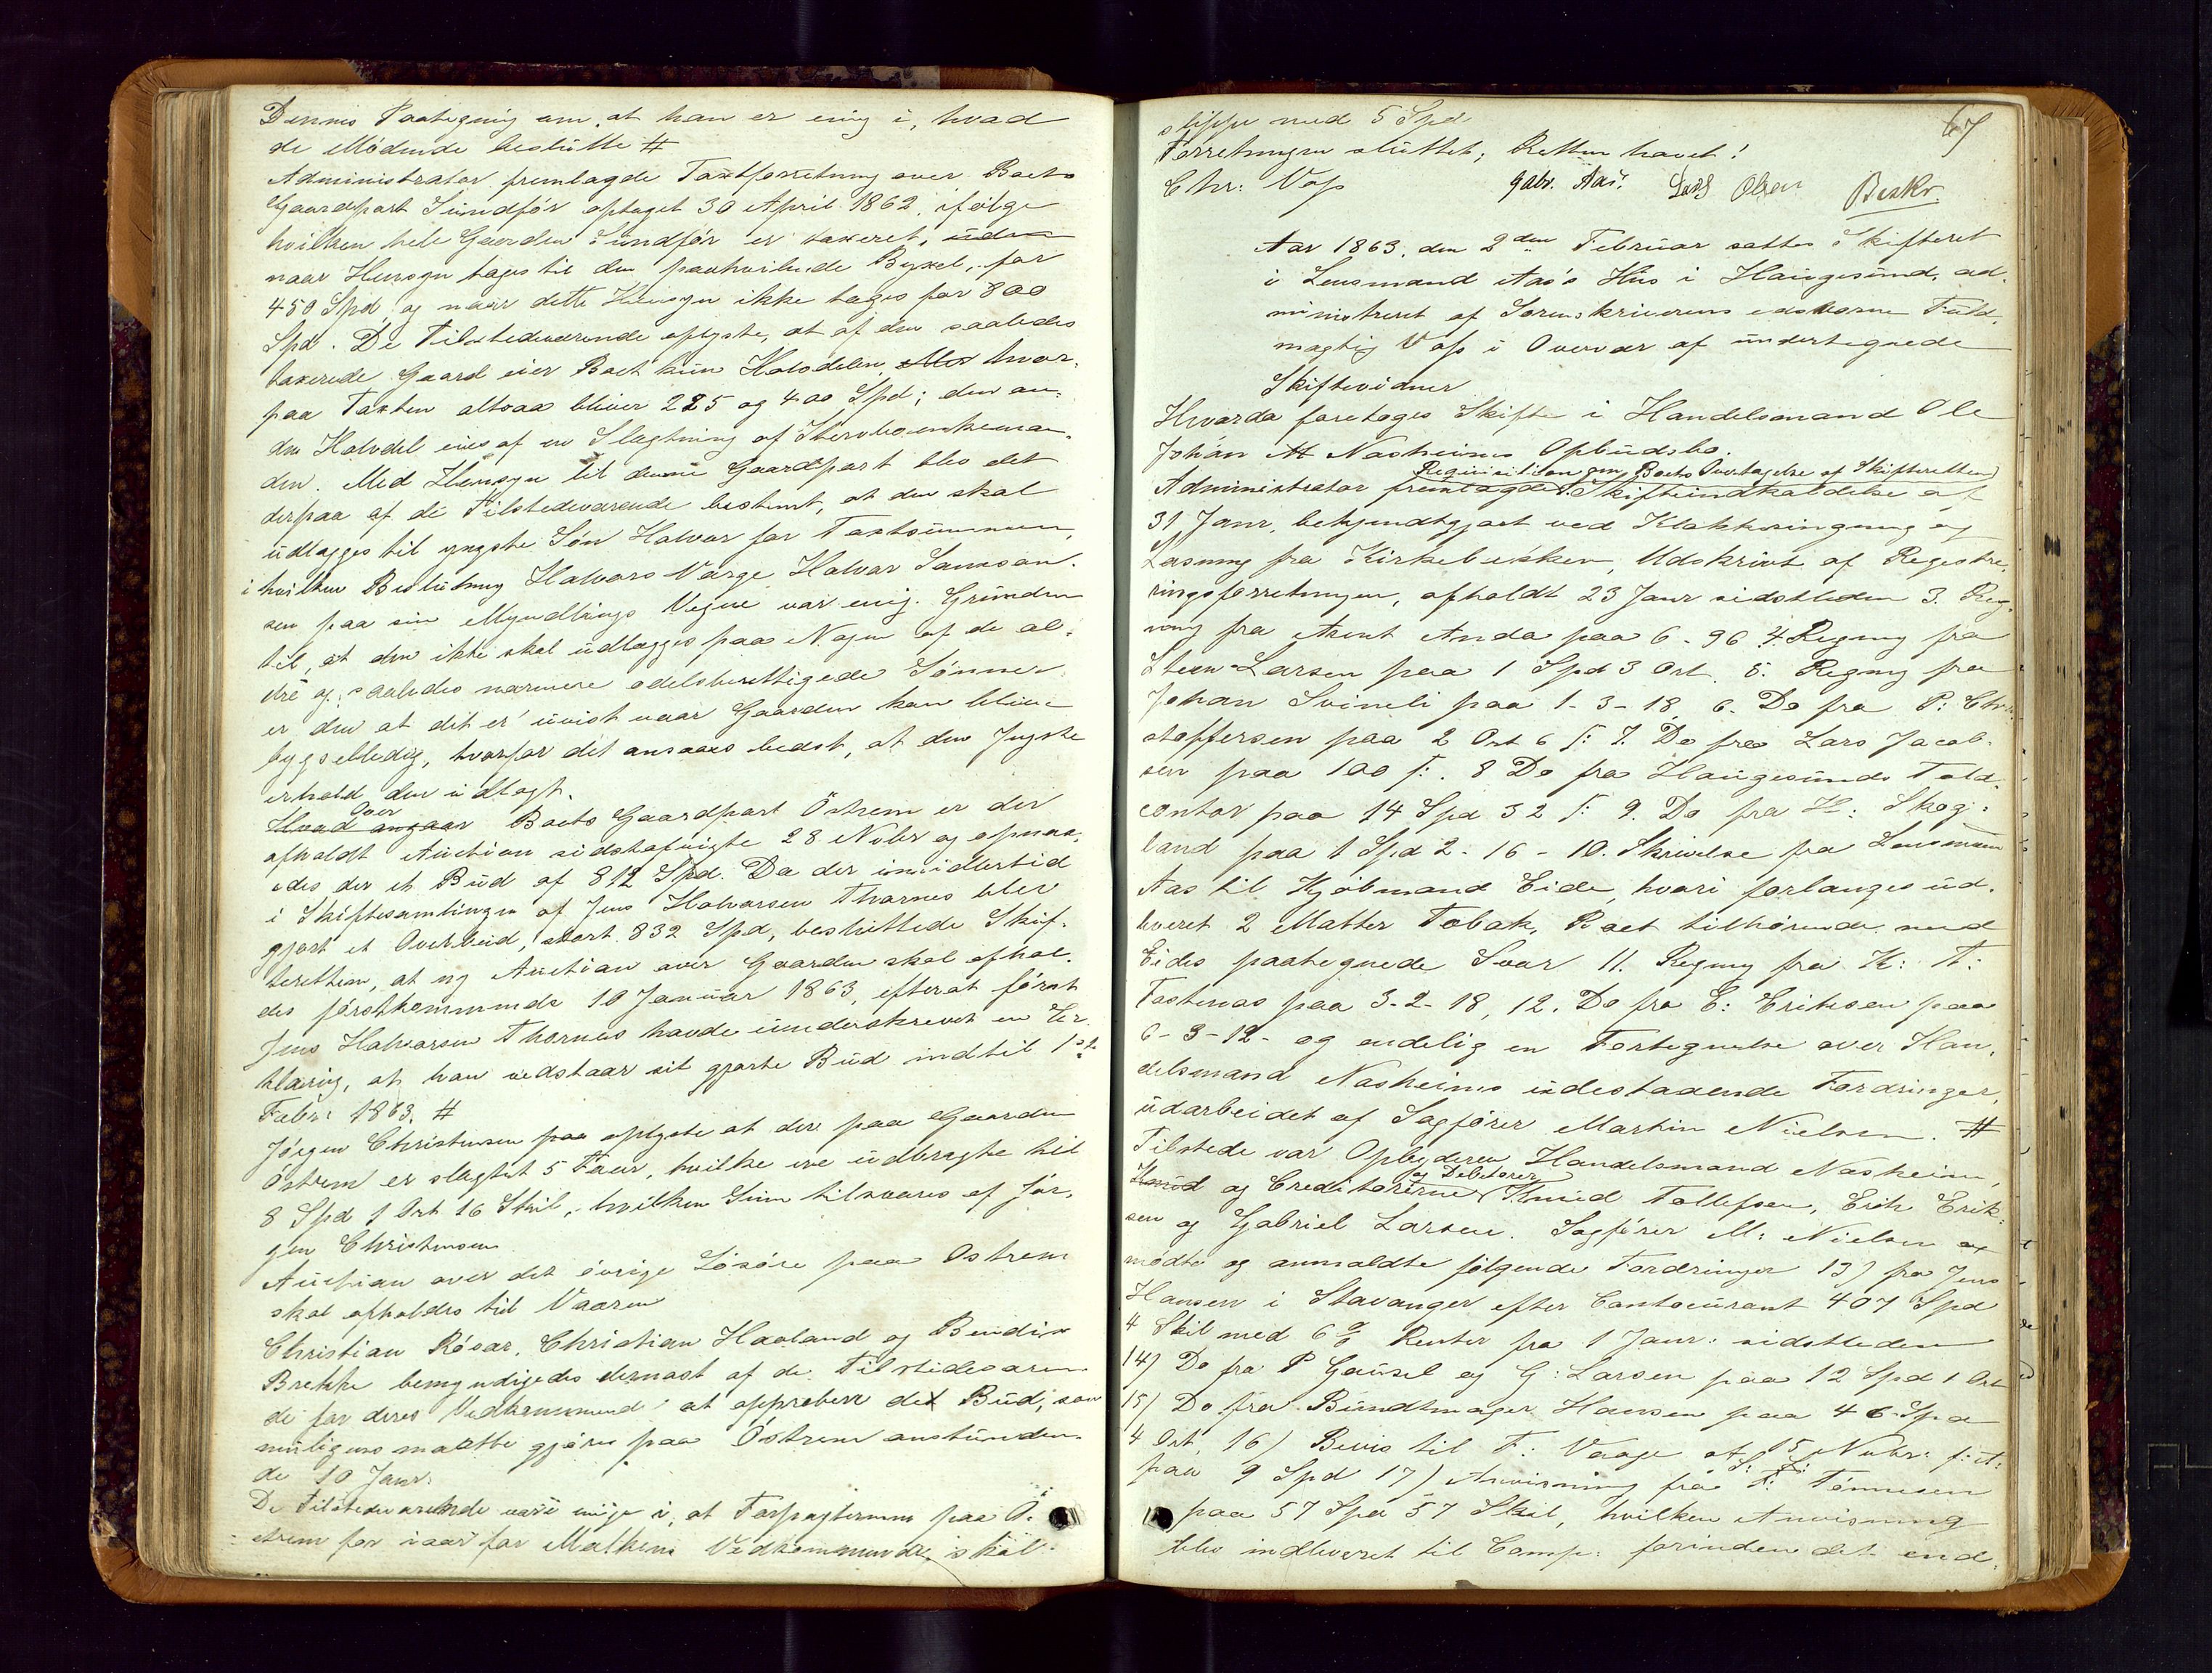 Dennes Paategning om, at han er enig i, hvad
de Mödende beslutte #
Administrator fremlagde Taxtforretning over Boets
Gaardpart Sundför optaget 30 April 1862, ifölge
hvilken hele Gaarden Sundför er taxeret, uden
naar Hensyn tages til den paahvilende Byxel, for
450 Spd og naar dette Hensyn ikke tages for 800
Spd. De Tilstedeværende oplyste, at af den saaledes
taxerede Gaard eier Boet kun Halvdelen, hvor-
paa Taxten altsaa bliver 225 og 400 Spd; den an-
den Halvdel eies af en Slægtning af Stervboenkeman-
den. Med Hensyn til denne Gaardpart blev det
derpaa af de Tilstedeværende bestemt, at den skal
udlægges til yngste Sön Halvor for Taxtsummen,
i hvilken Beslutning Halvors Værge Halvor Samson-
sen paa sin Myndlings Vegne var enig. Grunden
til, at den ikke skal udlægges paa Nogen af de æl-
dre og saaledes nærmere odelsberettigede Sönner
er den at det er uvist naar Gaarden kan blive
bygselledig, hvorfor det ansaaes bedst, at den Yngste
erhold den udlagt.
Over
Hvad angaar Boets Gaardpart Östrem er der
afholdt Auction sidstafvigte 28 Novbr og opnaa-
edes der et Bud af 812 Spd. Da der imidlertid
i Skiftesamlingen af Jens Halvorsen Thornes blev
gjort et Overbud, stort 832 Spd, besluttede Skif-
teretten, at ny Auction over Gaarden skal afhol-
des förstkommende 10 Januar 1863, efterat först
Jens Halvorsen Thornes havde underskrevet en Er-
klæring, at han vedstaar sit gjorte Bud indtil 1ste
Febr: 1863. #
Jörgen Christensen paa oplyste at der paa Gaarden
Östrem er slagtet 5 Faar, hvilke ere udbragte til
8 Spd 1 Ort 16 Skil, hvilken Sum tilsvares af Jör-
gen Christensen
Auction over det övrige Lösöre paa Östrem
skal afholdes til Vaaren
Christian Rösar, Christian Haaland og Bendix
Brekke bemyndigedes dernæst af de Tilstedeværen-
de for deres Vedkommende at approbere det Bud, som
muligens maatte gjöres paa Östrem anstunden-
de 10 Janr:
De Tilstedeværende vare enige i, at Forpagteren paa Ö-
strem for iaar for Melkens Vedkommende skal
slippe med 5 Spd
Forretningen sluttet; Retten hævet!
Chr: Voss Gabr. Aas. Lars Olsen Beskr.
67
Aar 1863, den 2den Februar sattes Skifteret
i Lensmand Aas's Hus i Haugesund, ad-
ministreret af Sorenskriverens edsvorne Fuld-
mægtig Voss i Overvær af undertegnede
Skiftevidner
Hvorda foretoges Skifte i Handelsmand Ole
Johan Nasheims Opbudsbo.
Requisition om Boets Overtagelse af Skifteretten
Administrator fremlagde Skifteindkaldelse af
31 Janr, bekjendtgjort ved Klokkeringning og
Læsning fra Kirkebakken, Udskrivt af Registre-
ringsforretningen, afholdt 23 Janr sidstleden 3. Reg-
ning fra Arent Anda paa 6-96 4. Regning fra
Steen Larsen paa 1 Spd 3 Ort. 5. Regning fra
Johan Svineli paa 1-3-18, 6. Do fra P: Chri-
stoffersen paa 2 Ort 6 s: 7. Do fra Lars Jacob-
sen paa 100 s:. 8 Do fra Haugesunds Told-
contor paa 14 Spd 32 s: 9. Do fra H: Skog-
land paa 1 Spd 2-16-10. Skrivelse fra Lensmand
Aas til Kjöbmand Eide, hvori forlanges ud-
leveret 2 Matter Tobak, Boet tilhörende, med
Eides paategnede Svar 11. Regning fra K: T:
Tastenas paa 3-2-18, 12. Do fra E: Eriksen paa
6-3-12- og endelig en Fortegnelse over Han-
delsmand Nasheims udestaaende Fordringer,
udarbeidet af Sagförer Martin Nielsen. #
Tilstede var Opbyderen Handelsmand Nasheim,
og Debitorer
Knud og Creditorerne Knud Tollefsen, Erik Erik-
sen og Gabriel Larsen. Sagförer M: Nielsen og
mödte og anmældte fölgende Fordringer 13) fra Jens
Hansen i Stavanger efter Contocurant 407 Spd
4 Skil med 6 % Renter fra 1 Janr: sidstleden
14) Do fra P Gausel og G: Larsen paa 12 Spd 1 Ort
15) Do fra Bundtmager Hansen paa 46 Spd
4 Ort, 16) Bevis til F: Vaage af 15 Novbr: f: A:
paa 9 Spd 17) Anvisning fra Tönnesen
paa 57 Spd 57 Skil, hvilken Anvisning
blev indleveret til Comp: forinden det end-